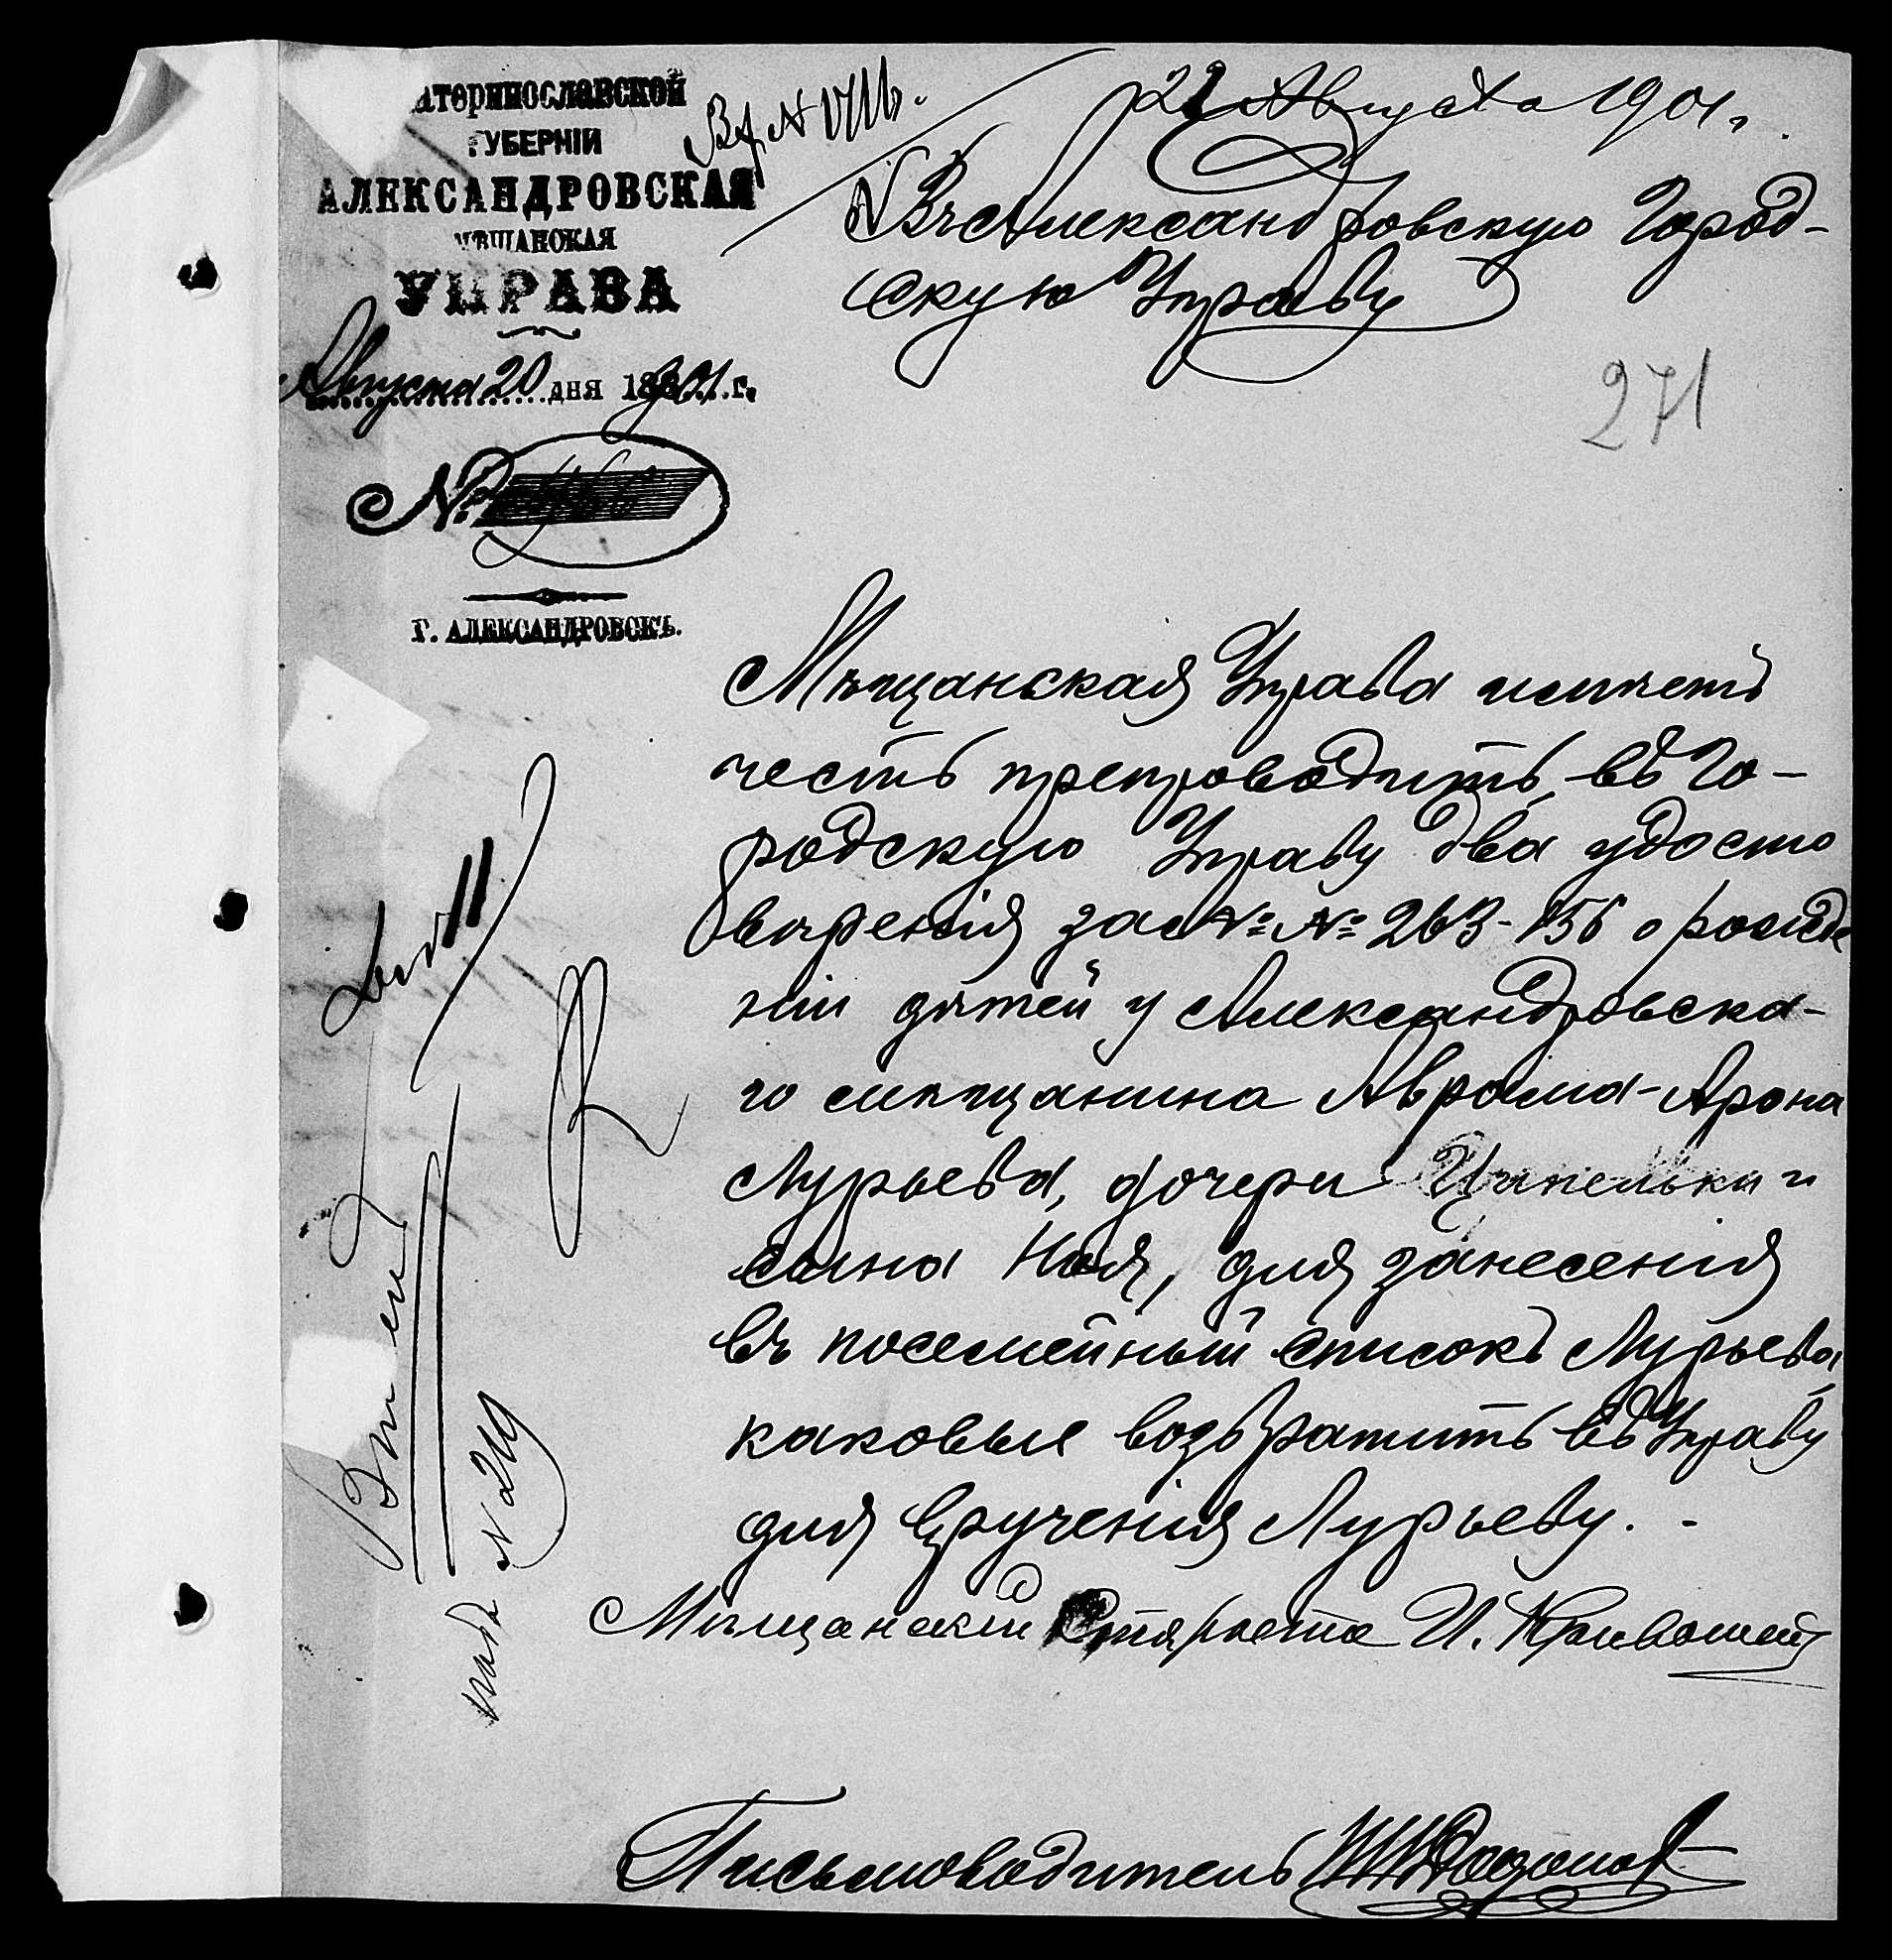 атеринославской
ГУБЕРНІИ
АЛЕКСАНДРОВСКАЯ
МѢЩАНСКАЯ
УПРАВА
Августа 20 дня 1901 г.
№
Г. АЛЕКСАНДРОВСКЪ.
Вх №
22 Августа 1901 г.
Въ Александровскую Город-
скую Управу
271
Мѣщанская Управа имѣетъ
честь препроводить въ Го-
родскую Управу два удосто
вѣренія за №№ 263-156 о рожде
ніи дѣтей у Александровска-
го мѣщанина Аврама-Арона
Лурьева, дочери и
сына Ноя, для занесенія
въ посемейный списокъ Лурьева,
каковые возвратить въ Управу
для врученія Лурьеву.-
Мѣщанскій Староста И. Кривошей
Письмоводитель
№ 219